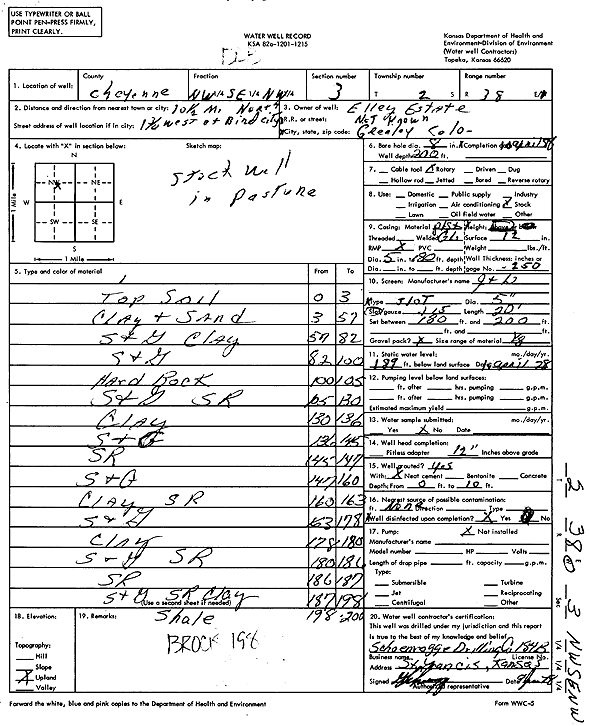 USE TYPEWRITER OR BALL
POINT PEN-PRESS FIRMLY,
PRINT CLEARLY.
WATER WELL RECORD
KSA 82a-1201-1215
Kansas Department of Health and
Environment-Division of Environment
(Water well Contractors)
Topeka, Kansas 66620
1. Location of well: County Cheyenne Fraction NW 1/4 SE 1/4 NW 1/4 Section number 3 Township number T 2 S Range number R 38 E/W
2. Distance and direction from nearest town or city: 10 1/2 Mi North
Street address of well location if in city: 1 3/4 West of Bird city
3. Owner of well: Elley Estate
R.R. or street: Not Known
City, state, zip code: Greeley Colo-
4. Locate with "X" in section below:
N
NW X NE
W E
SW SE
S
1 Mile
1 Mile
Sketch map:
Stock Well
in Pasture
6. Bore hole dia. 8 in. Completion date
Well depth 200 ft.
7. Cable tool X Rotary Driven Dug
Hollow rod Jetted Bored Reverse rotary
8. Use: Domestic Public supply Industry
Irrigation Air conditioning X Stock
Lawn Oil field water Other
9. Casing: Material Height: Above or below
Threaded Welded Surface 12 in.
RMP X PVC Weight lbs./ft.
Dia. 5 in. to 180 ft. depth Wall Thickness: inches or
Dia. in. to ft. depth gage No. 250
5. Type and color of material From To
Top Soil 0 3
Clay & Sand 3 57
S & G Clay 57 82
S & G 82 100
Hard Rock 100 105
S & G SR 105 130
Clay 130 136
S & G 136 145
SR 145 147
S & G 147 160
Clay SR 160 163
S & G 163 178
Clay 178 180
S & G SR 180 186
SR 186 187
S & G SR Clay 187 198
(Use a second sheet if needed)
Shale 198 200
10. Screen: Manufacturer's name
Type SLOT Dia. 5"
Slot/gauze Length 20'
Set between 180 ft. and 200 ft.
ft. and ft.
Gravel pack? X Size range of material
11. Static water level: mo./day/yr.
189 ft. below land surface Date April 78
12. Pumping level below land surfaces:
ft. after hrs. pumping g.p.m.
ft. after hrs. pumping g.p.m.
Estimated maximum yield g.p.m.
13. Water sample submitted: mo./day/yr.
Yes X No Date
14. Well head completion:
Pitless adapter 12" Inches above grade
15. Well grouted? Yes
With: X Neat cement Bentonite Concrete
Depth: From 0 ft. to 10 ft.
16. Nearest source of possible contamination:
ft. None Direction Type
Well disinfected upon completion? X Yes No
17. Pump: X Not installed
Manufacturer's name
Model number HP Volts
Length of drop pipe ft. capacity g.p.m.
Type:
Submersible Turbine
Jet Reciprocating
Centrifugal Other
18. Elevation:
Topography:
Hill
Slope
X Upland
Valley
19. Remarks:
BROCK 198
20. Water well contractor's certification:
This well was drilled under my jurisdiction and this report
is true to the best of my knowledge and belief.
Schoenrogge Drilling Co
Business name License No.
Address St. Francis, Kansas
Signed
Authorized representative
Forward the white, blue and pink copies to the Department of Health and Environment
Form WWC-5
2 38 W 3 NW SE NW
T R Sec 1/4 1/4 1/4